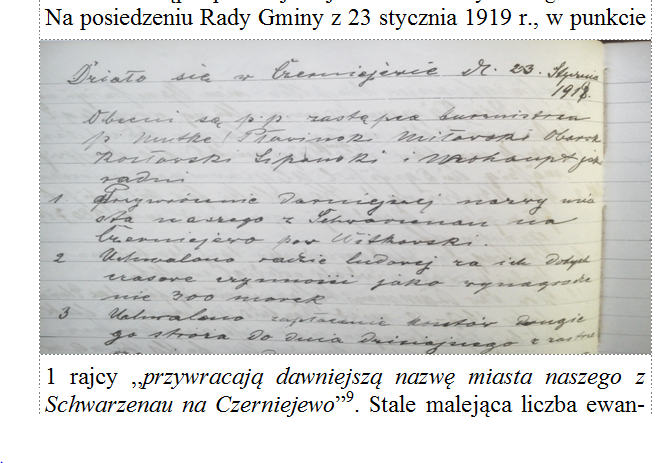 Na posiedzeniu Rady Gminy z 23 stycznia 1919 r., w punkcie
Działo się w Czerniejewie d. 23. Stycznia
1919.
Obecni są p.p. zastępca burmistrza
p. Mutke, Pławinski Miławski
Kozławski Lipinski i jak
radni
1 Przywrócenie dawniejszej nazwy mia
sta naszego z Schwarzenau na
Czerniejewo pow Witkowski
2 Uchwalono radzie ludowej za ich dotych
czasowe czynności jako wynagrodze
nie 300 marek
3 Uchwalono zapłacenie kosztów drugie
go stróża do dnia dzisiejszego z
1 rajcy „przywracają dawniejszą nazwę miasta naszego z
Schwarzenau na Czerniejewo”9. Stale malejąca liczba ewan-